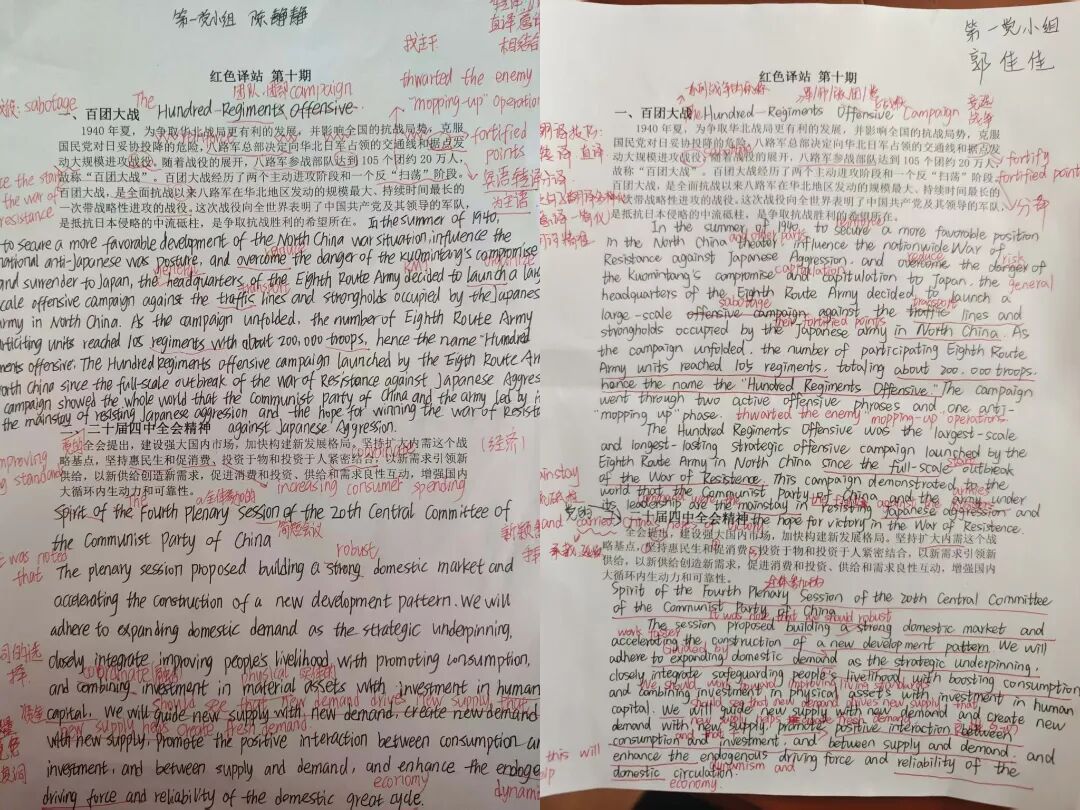 第一党小组 陈静静
找主干
直译
相结合
红色译站 第十期
团队、团结 campaign
thwarted the enemy
"mopping-up" operation
sabotage
The
一、百团大战 Hundred-Regiments offensive
1940年夏，为争取华北战局更有利的发展，并影响全国的抗战局势，克服
国民党对日妥协投降的危险，八路军总部决定向华北日军占领的交通线和据点发
动大规模进攻战役。随着战役的开展，八路军参战部队达到105个团约20万人，
故称“百团大战”。百团大战经历了两个主动进攻阶段和一个反“扫荡”阶段。
百团大战，是全面抗战以来八路军在华北地区发动的规模最大、持续时间最长的
一次带战略性进攻的战役。这次战役向全世界表明了中国共产党及其领导的军队，
是抵抗日本侵略的中流砥柱，是争取抗战胜利的希望所在。 In the summer of 1940,
fortified
points
为主语
the war of
resistance
to secure a more favorable development of the North China war situation, influence the
national anti-Japanese war posture, and overcome the danger of the Kuomintang's compromise
and surrender to Japan, the headquarters of the Eighth Route Army decided to launch a
reduce
general
transport
scale offensive campaign against the traffic lines and strongholds occupied by the Japanese
army in North China. As the campaign unfolded, the number of Eighth Route Army
units reached 105 regiments with about 200,000 troops, hence the name "Hundred
offensive. The Hundred Regiments offensive campaign launched by the Eigth Route
North China since the full-scale outbreak of the war of Resistance against Japanese
campaign showed the whole world that the Communist Party of China and the army led by
the mainstay of resisting Japanese aggression and the hope for winning the war of
二、二十届四中全会精神 against Japanese Aggression.
全会提出，建设强大国内市场，加快构建新发展格局。坚持扩大内需这个战
略基点，坚持惠民生和促消费、投资于物和投资于人紧密结合，以新需求引领新
供给，以新供给创造新需求，促进消费和投资、供给和需求良性互动，增强国内
大循环内生动力和可靠性。
(经济)
improving
increasing consumer spending
The
Spirit of the Fourth Plenary Session of the 20th Central Committee of
the Communist Party of China
was noted
that
robust
The plenary session proposed building a strong domestic market and
accelerating the construction of a new development pattern. We will
adhere to expanding domestic demand as the strategic underpinning,
closely integrate improving people's livelihood with promoting consumption,
physical
and combining investment in material assets with investment in human
should see that new demand drives new supply that
capital. We will guide new supply with new demand, create new demand
new supply helps create fresh demand
with new supply, promote the positive interaction between consumption
investment, and between supply and demand, and enhance the
economy
driving force and reliability of the domestic great cycle.
第一党小组
郭佳佳
红色译站 第十期
一、百团大战 Hundred-Regiments Offensive Campaign
1940年夏，为争取华北战局更有利的发展，并影响全国的抗战局势，克服
国民党对日妥协投降的危险，八路军总部决定向华北日军占领的交通线和据点发
动大规模进攻战役。随着战役的开展，八路军参战部队达到105个团约20万人，
故称“百团大战”。百团大战经历了两个主动进攻阶段和一个反“扫荡”阶段。
百团大战，是全面抗战以来八路军在华北地区发动的规模最大、持续时间最长的
一次带战略性进攻的战役。这次战役向全世界表明了中国共产党及其领导的军队，
是抵抗日本侵略的中流砥柱，是争取抗战胜利的希望所在。
fortify
fortified point
In the summer of 1940, to secure a more favorable position
in the North China theater, influence the nationwide War of
Resistance against Japanese Aggression, and overcome the danger of
reduce
risk
the Kuomintang's compromise and capitulation to Japan, the general
capitulation
headquarters of the Eighth Route Army decided to launch a
sabotage
transport
large-scale offensive campaign against the traffic lines and
their fortified points
strongholds occupied by the Japanese army in North China. As
the campaign unfolded, the number of participating Eighth Route
Army units reached 105 regiments, totaling about 200,000 troops,
hence the name the "Hundred Regiments Offensive." The campaign
went through two active offensive phrases and one anti-
"mopping up" phase. thwarted the enemy "mopping-up" operations.
The Hundred Regiments Offensive was the largest-scale
and longest-lasting strategic offensive campaign launched by the
Eighth Route Army in North China since the full-scale outbreak
of the War of Resistance. This campaign demonstrated to the
world that the Communist Party of China and the army under
its leadership are the mainstay in resisting Japanese aggression and
二、二十届四中全会精神 the hope for victory in the War of Resistance.
全会提出，建设强大国内市场，加快构建新发展格局。坚持扩大内需这个战
略基点，坚持惠民生和促消费、投资于物和投资于人紧密结合，以新需求引领新
供给，以新供给创造新需求，促进消费和投资、供给和需求良性互动，增强国内
大循环内生动力和可靠性。
Spirit of the Fourth Plenary Session of the 20th Central Committee
of the Communist Party of China
It was noted that we should
robust
The session proposed building a strong domestic market and
work faster
accelerating the construction of a new development pattern. We will
Guided by
adhere to expanding domestic demand as the strategic underpinning,
closely integrate safeguarding people's livelihood with boosting consumption
We should work toward improving living standards
and combining investment in physical assets with investment in human
should see that new demand drives new supply that
capital. We will guide new supply with new demand and create new
new supply helps create fresh demand
demand with new supply, promote positive interaction between
consumption and investment, and between supply and demand, and
enhance the endogenous driving force and reliability of the
this will
dynamism and
domestic circulation.
economy.